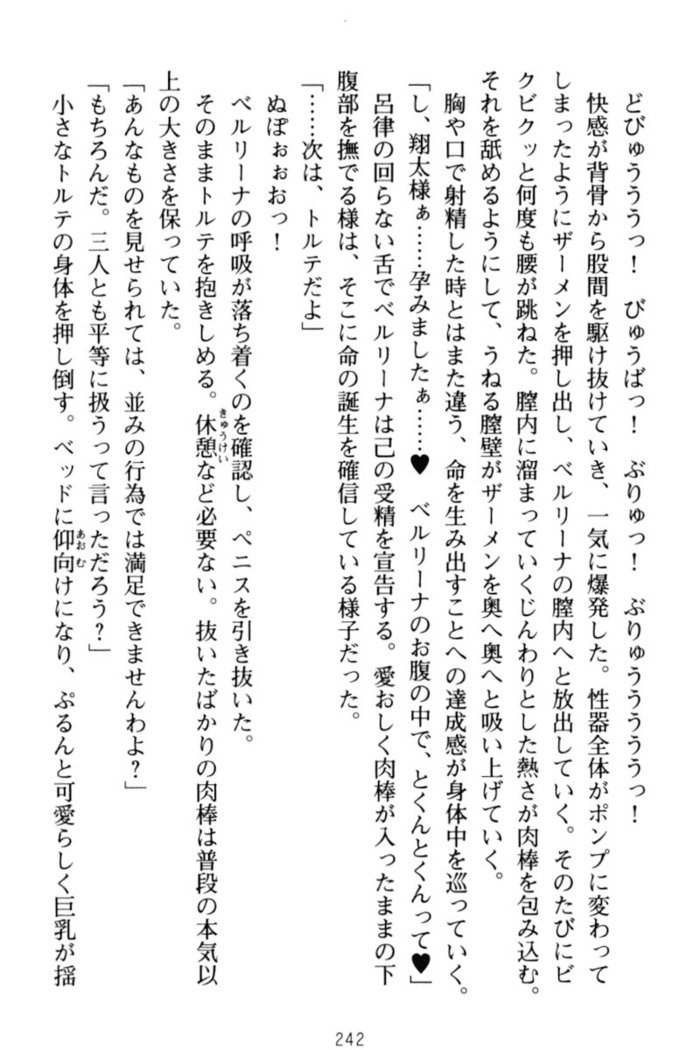 どびゅうううっ！　びゅうばっ！　ぶりゅっ！　ぶりゅうううううっ！
快感が背骨から股間を駆け抜けていき、一気に爆発した。性器全体がポンプに変わって
しまったようにザーメンを押し出し、ベルリーナの膣内へと放出していく。そのたびにビ
クビクッと何度も腰が跳ねた。膣内に溜まっていくじんわりとした熱さが肉棒を包み込む。
それを舐めるようにして、うねる膣壁がザーメンを奥へ奥へと吸い上げていく。
胸や口で射精した時とはまた違う、命を生み出すことへの達成感が身体中を巡っていく。
「し、翔太様ぁ……孕みましたぁ……♥　ベルリーナのお腹の中で、とくんとくんって♥」
呂律の回らない舌でベルリーナは己の受精を宣告する。愛おしく肉棒が入ったままの下
腹部を撫でる様は、そこに命の誕生を確信している様子だった。
「……次は、トルテだよ」
ぬぽぉぉおっ！
ベルリーナの呼吸が落ち着くのを確認し、ペニスを引き抜いた。
そのままトルテを抱きしめる。休憩きゅうけいなど必要ない。抜いたばかりの肉棒は普段の本気以
上の大きさを保っていた。
「あんなものを見せられては、並みの行為では満足できませんわよ？」
「もちろんだ。三人とも平等に扱うって言っただろう？」
小さなトルテの身体を押し倒す。ベッドに仰向あおむけになり、ぷるんと可愛らしく巨乳が揺
242